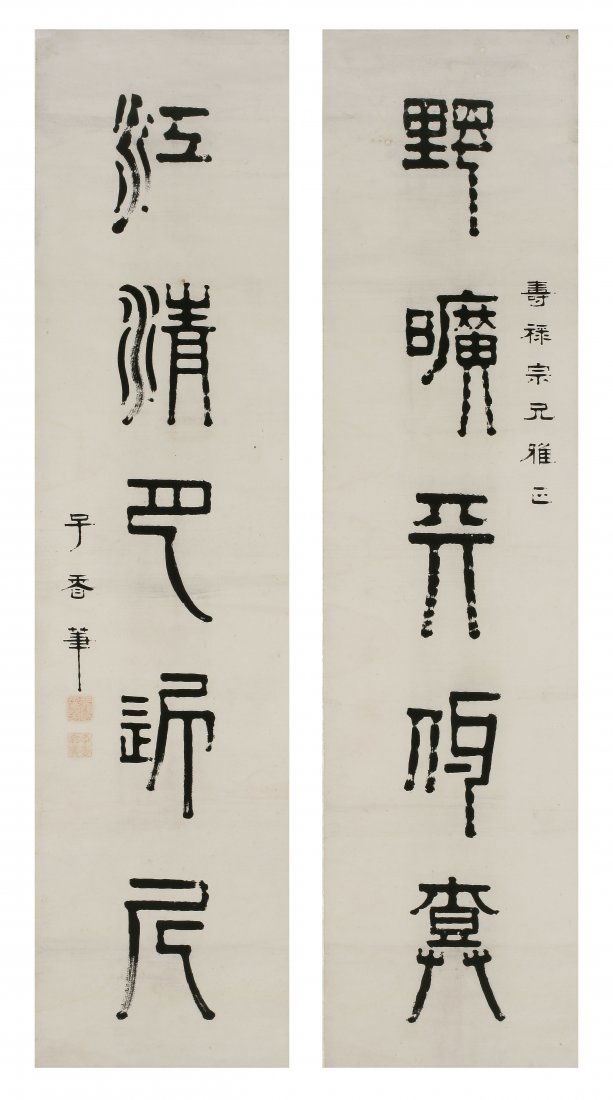 壽祿宗兄雅正
野曠天低樹
江清月近人
子香筆